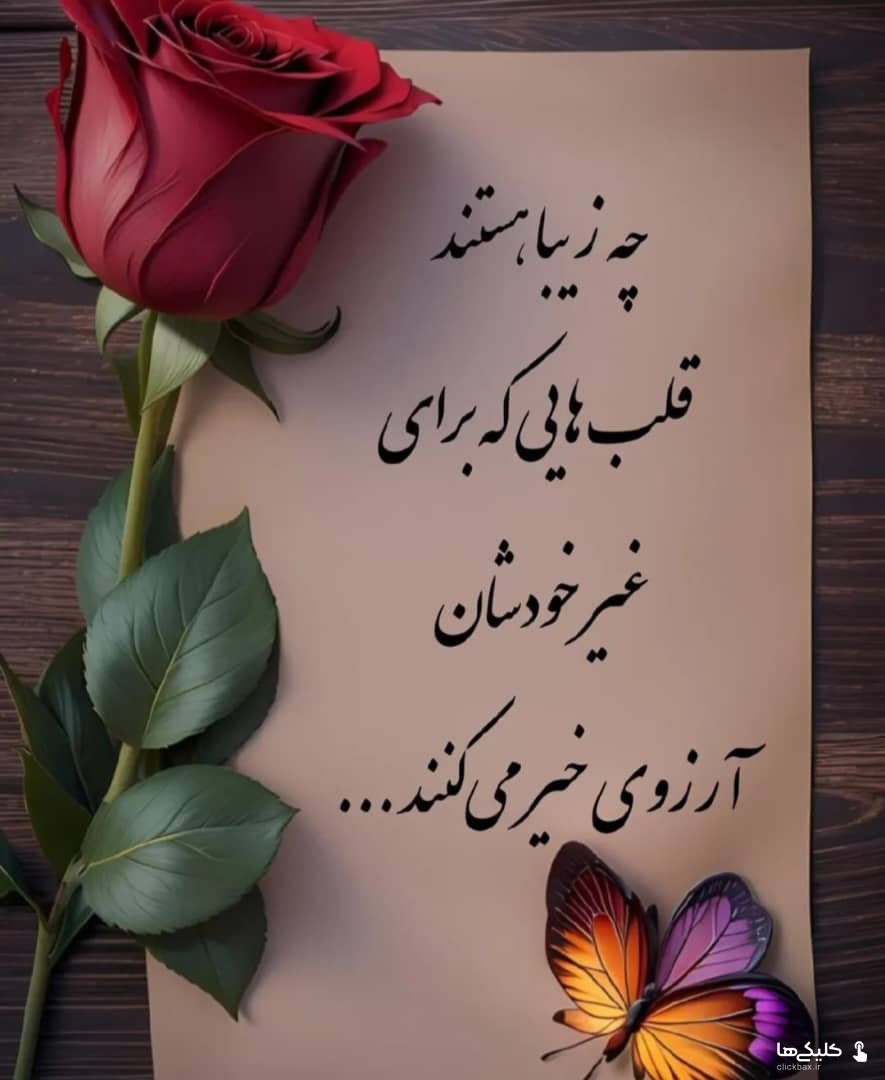 چه زیبا هستند
قلب‌هایی که برای
غیر خودشان
آرزوی خیر می‌کنند...
کلیکی‌ها
clickbax.ir